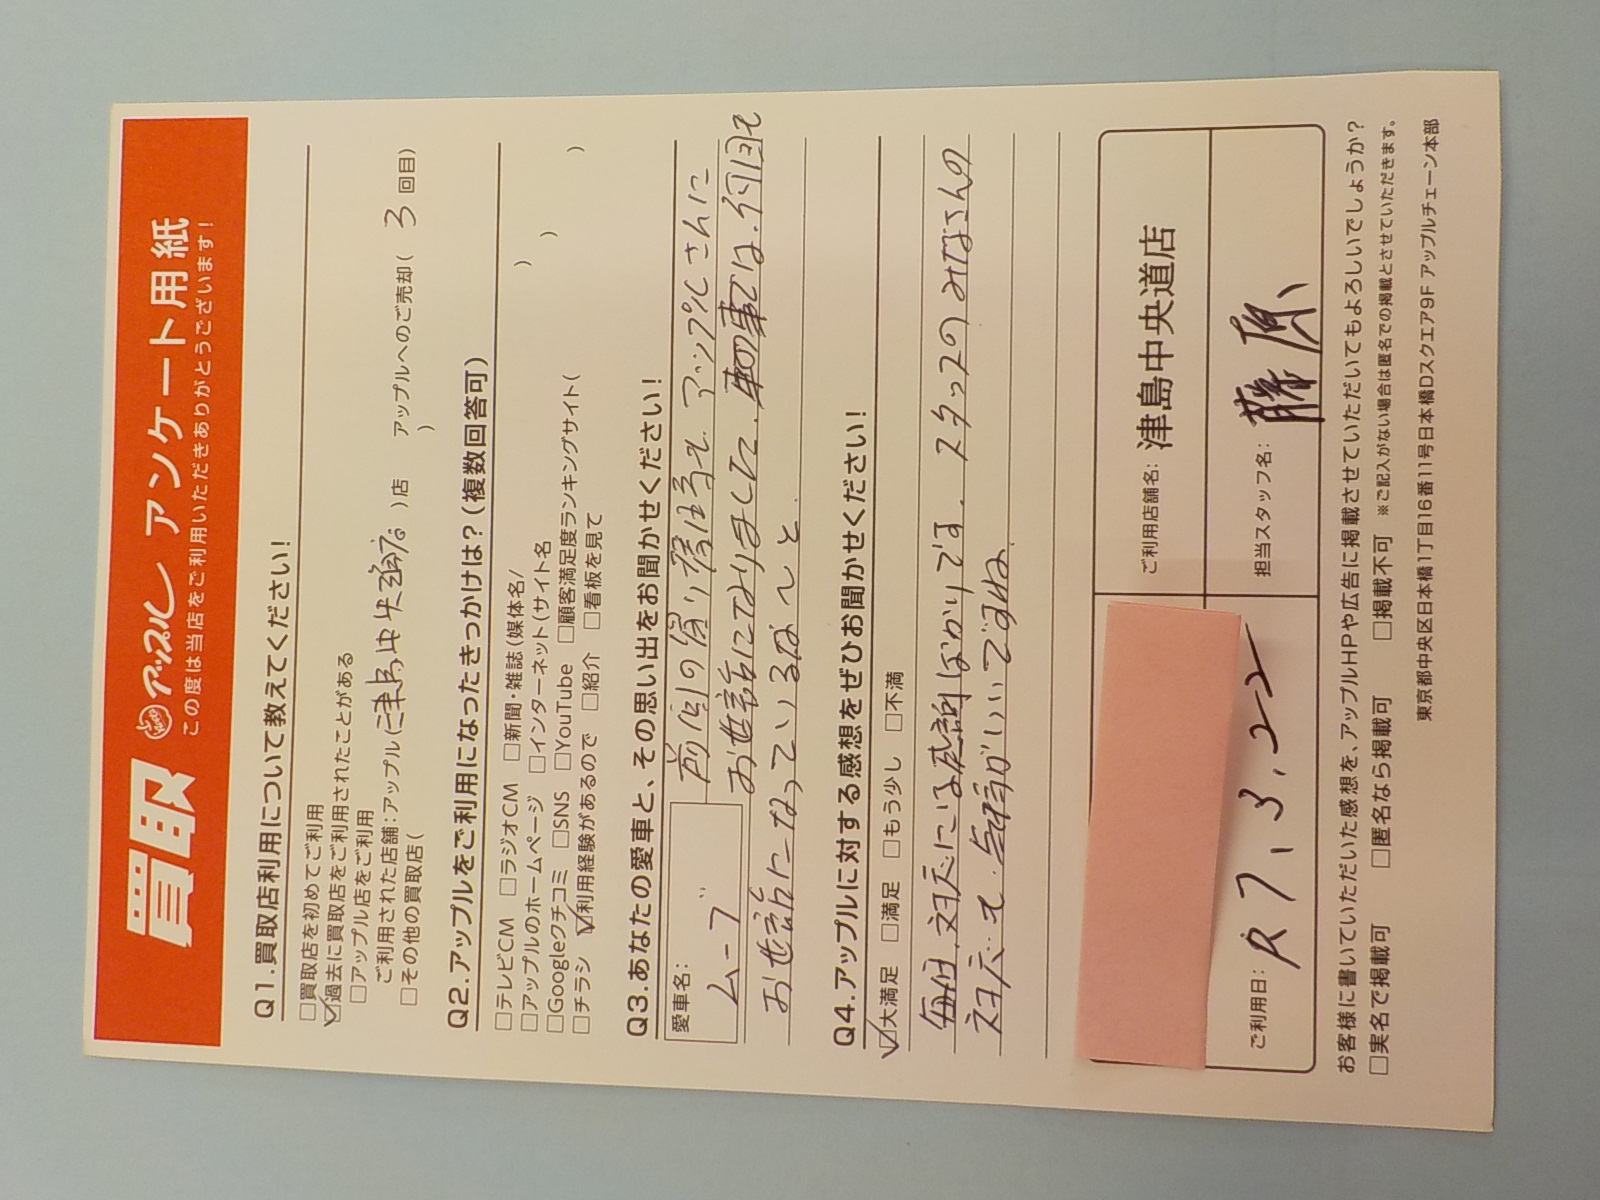 買取 アップル アンケート用紙
この度は当店をご利用いただきありがとうございます!
Q1.買取店利用について教えてください!
□買取店を初めてご利用
☑過去に買取店をご利用されたことがある
□アップル店をご利用
ご利用された店舗:アップル(津島中央道店)店 アップルへのご売却( 3 回目)
□その他の買取店( )
Q2.アップルをご利用になったきっかけは?(複数回答可)
□テレビCM □ラジオCM □新聞・雑誌(媒体名/ )
□アップルのホームページ □インターネット(サイト名 )
□Googleクチコミ □SNS □YouTube □顧客満足度ランキングサイト( )
□チラシ ☑利用経験があるので □紹介 □看板を見て
Q3.あなたの愛車と、その思い出をお聞かせください!
愛車名:
ムーブ
前回の買り替は、アップルさんに
お世話になりました。車の事では、何回も
お世話になっている
Q4.アップルに対する感想をぜひお聞かせください!
☑大満足 □満足 □もう少し □不満
毎日、対応には感謝ばかりです。スタッフのみなさんの
対応も、気持がいいですね。
ご利用店舗名: 津島中央道店
ご利用日: R7,3,22
担当スタッフ名: 藤原
お客様に書いていただいた感想を、アップルHPや広告に掲載させていただいてもよろしいでしょうか?
□実名で掲載可 □匿名なら掲載可 □掲載不可 ※ご記入がない場合は匿名での掲載とさせていただきます。
東京都中央区日本橋1丁目16番11号日本橋Dスクエア9F アップルチェーン本部